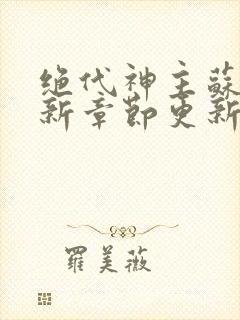 绝代神主蘇
新章節更新
羅美薇